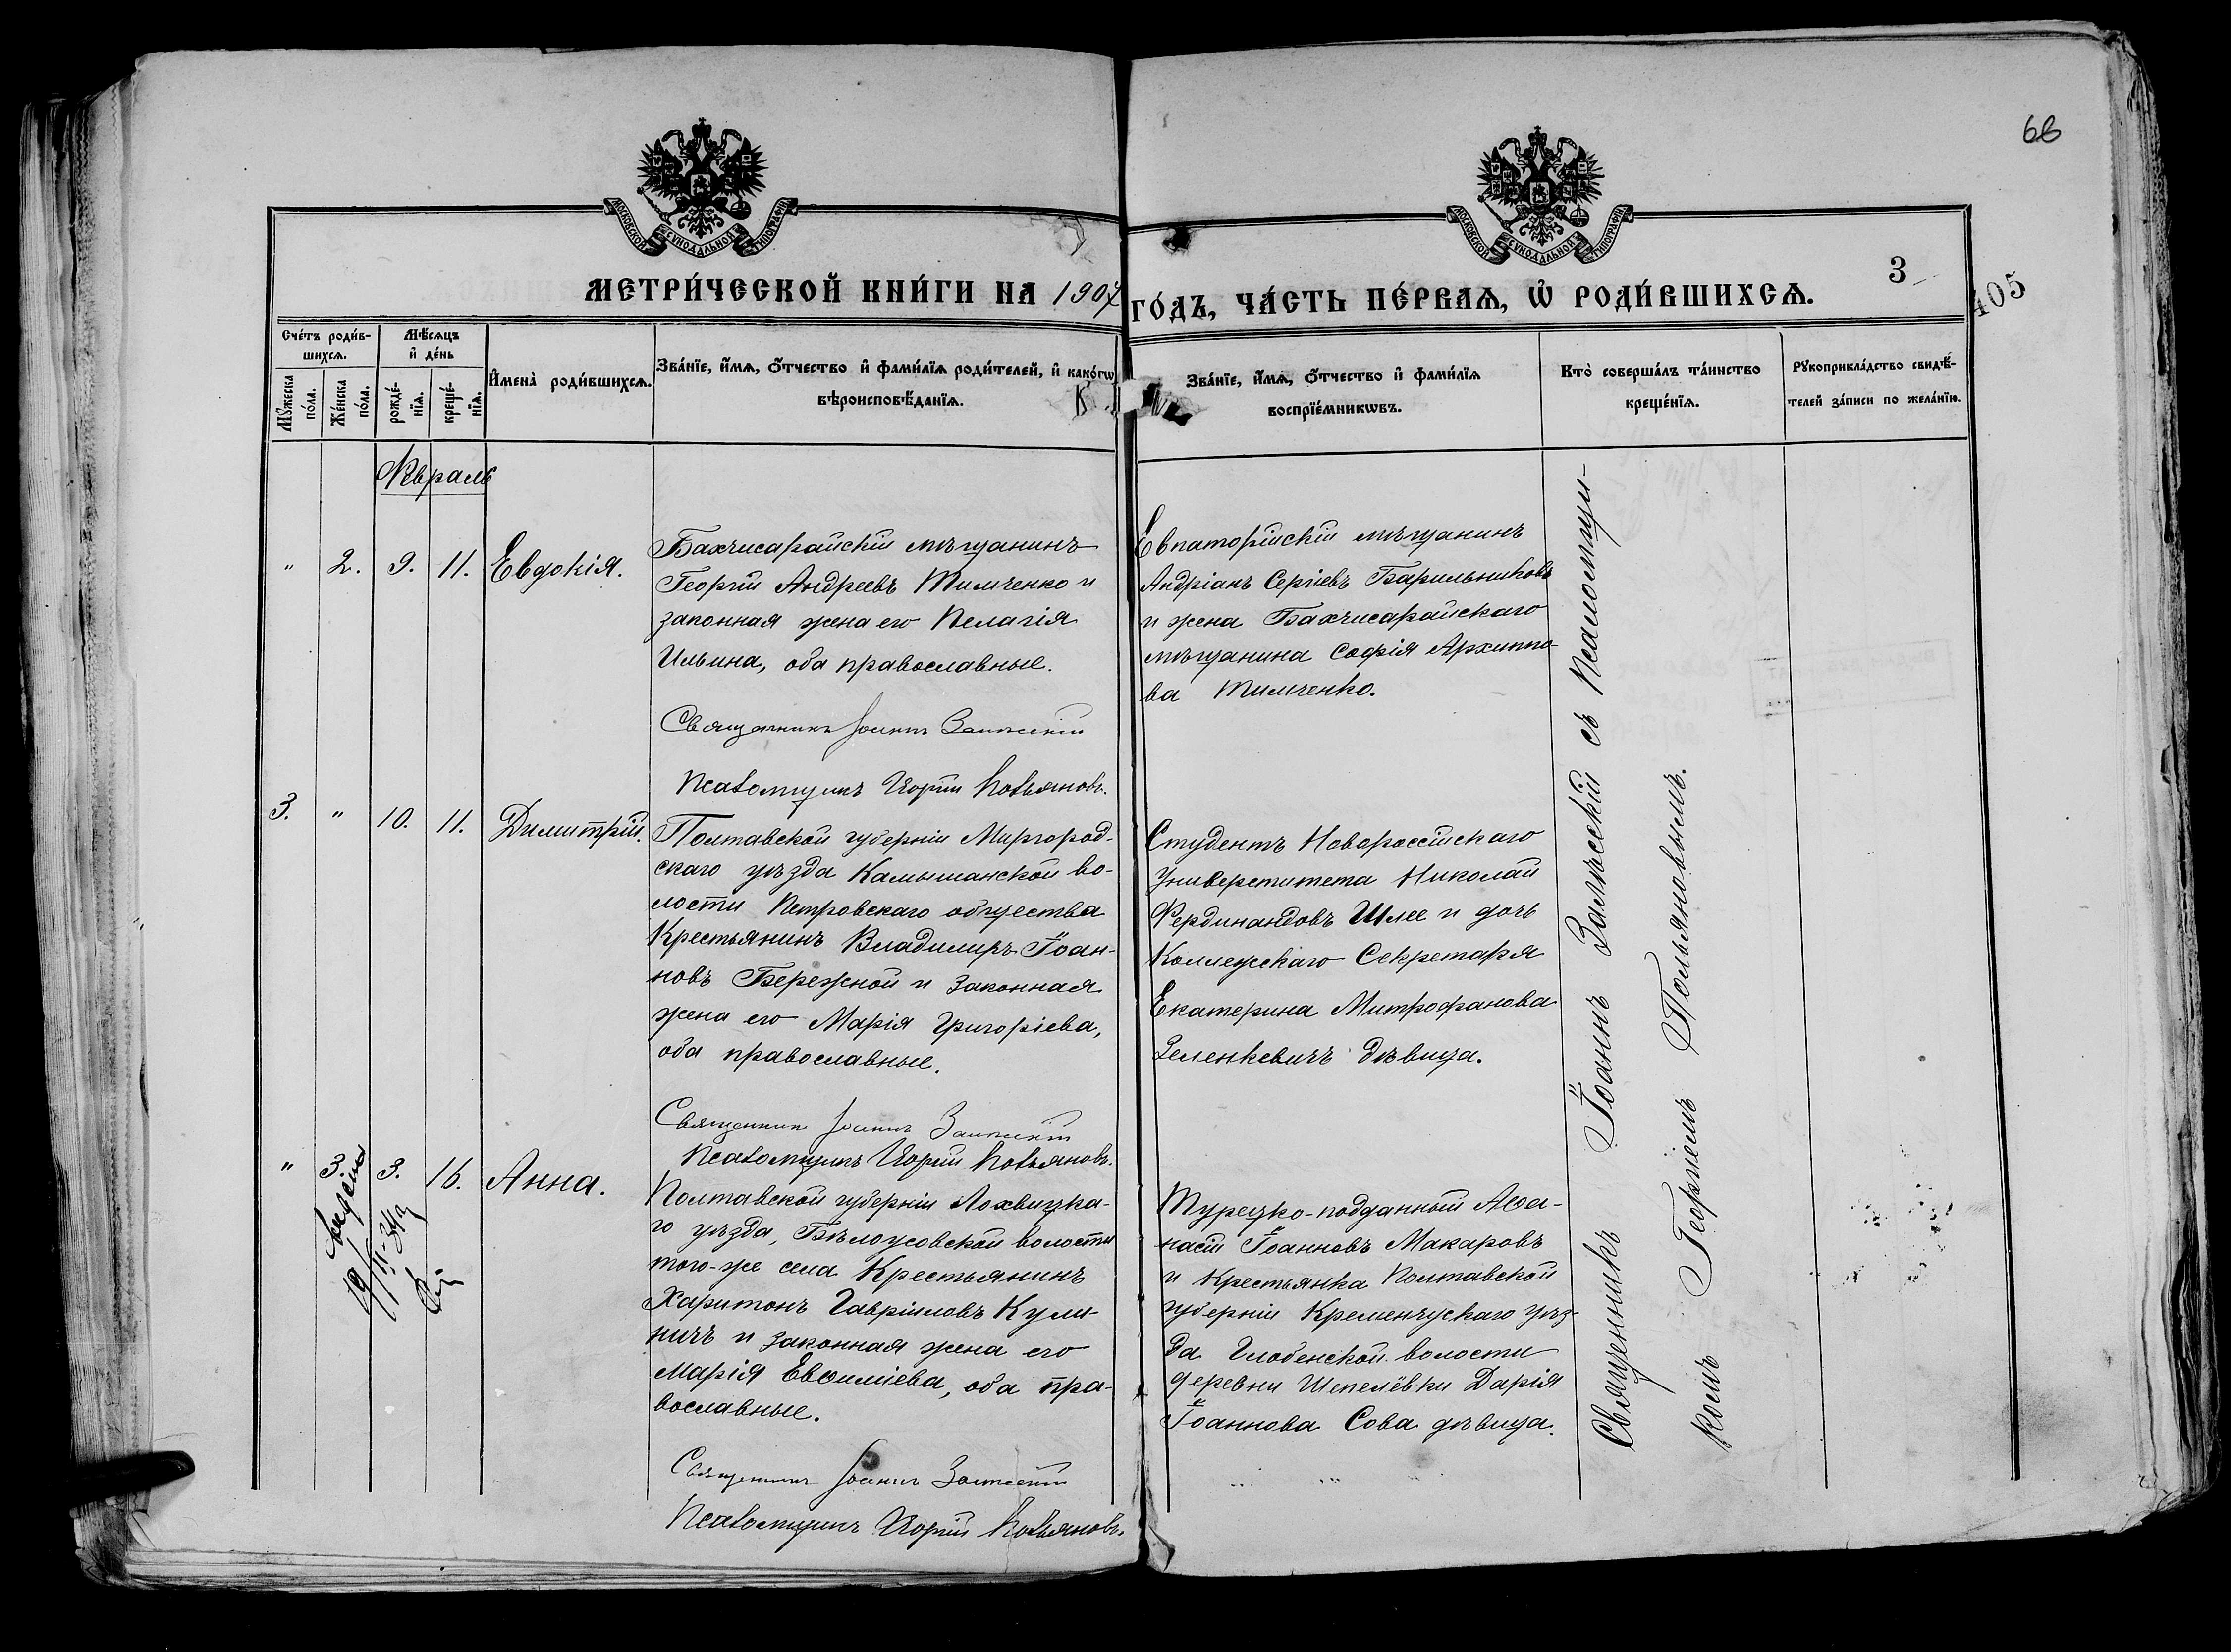 66
МОСКОВСКОЙ СѴНОДАЛЬНОЙ ТИПОГРАФІИ
МОСКОВСКОЙ СѴНОДАЛЬНОЙ ТИПОГРАФІИ
МЕТРИ́ЧЕСКОЙ КНИ́ГИ НА 1907
ГО́ДЪ, ЧА́СТЬ ПЕ́РВАѦ, Ѡ҆ РОДИ́ВШИХСѦ.
3
405
Сче́тъ роди́в-
шихсѧ.
Мѣ́сѧцъ
и҆ де́нь
Мꙋ́жеска
по́ла.
Же́нска
по́ла.
рожде́-
нїѧ.
креще́-
нїѧ.
И҆мена̀ роди́вшихсѧ.
Зва́нїе, и҆́мѧ, ѻ҆́тчество и҆ фами́лїѧ роди́телей, и҆ како́гѡ
вѣроисповѣ́данїѧ.
Зва́нїе, и҆́мѧ, ѻ҆́тчество и҆ фами́лїѧ
воспрїе́мникѡвъ.
Кто̀ соверша́лъ та́инство
креще́нїѧ.
Рꙋкоприкла́дство свидѣ́-
телей за́писи по жела́нїю.
Февраль
" 2. 9. 11. Евдокія.
Бахчисарайскій мѣщанинъ
Георгій Андреевъ Тимченко и
законная жена его Пелагія
Ильина, оба православные.
Священникъ Іоаннъ Залѣсскій
Псаломщикъ Георгій Польяновъ.
Евпаторійскій мѣщанинъ
Андріанъ Сергіевъ Барильниковъ
и жена Бахчисарайскаго
мѣщанина Софія Архиппо-
ва Тимченко.
3. " 10. 11. Димитрій.
Полтавской губерніи Миргород-
скаго уѣзда Камышанской во-
лости Петровскаго общества
Крестьянинъ Владимиръ Іоан-
новъ Бережной и законная
жена его Марія Григоріева,
оба православные.
Священникъ Іоаннъ Залѣсскій
Псаломщикъ Георгій Польяновъ.
Студентъ Новороссійскаго
Университета Николай
Фердинандовъ Шлее и дочь
Коллежскаго Секретаря
Екатерина Митрофанова
Зеленкевичъ дѣвица.
" 3. 3. 16. Анна.
Полтавской губерніи Лохвицка-
го уѣзда, Бѣлоусовской волости
того-же села Крестьянинъ
Харитонъ Гавріиловъ Кули-
ничъ и законная жена его
Марія Евѳиміева, оба пра-
вославные.
Священникъ Іоаннъ Залѣсскій
Псаломщикъ Георгій Польяновъ.
Турецко-подданный Аѳа-
насій Іоанновъ Макаровъ
и Крестьянка Полтавской
губерніи Кременчускаго уѣз-
да Глобенской волости
деревни Шепелёвки Дарія
Іоаннова Сова дѣвица.
Священникъ Іоаннъ Залѣсскій съ Псаломщи-
комъ Георгіемъ Польяновымъ.